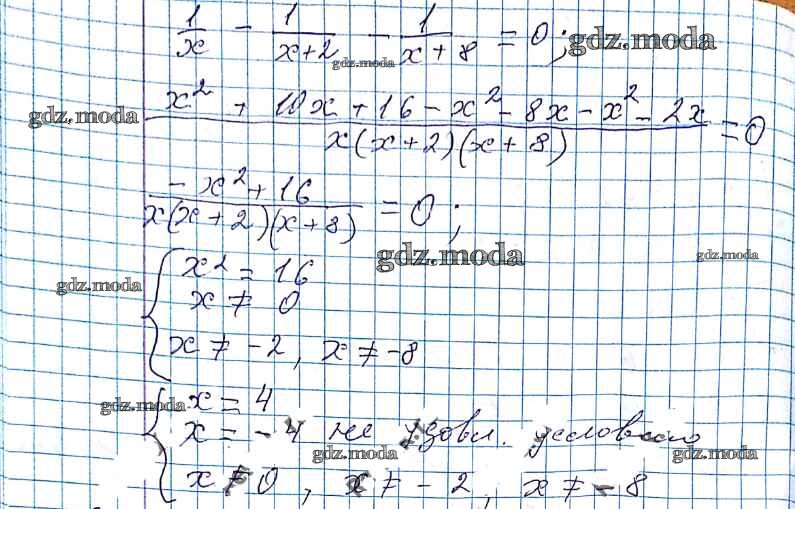 1/x - 1/(x+2) - 1/(x+8) = 0; gdz.moda
gdz.moda
gdz.moda
(x² + 10x + 16 - x² - 8x - x² - 2x)/(x(x+2)(x+8)) = 0
(-x² + 16)/(x(x+2)(x+8)) = 0;
gdz.moda
gdz.moda
gdz.moda
{ x² = 16
x ≠ 0
x ≠ -2, x ≠ -8
gdz.moda
{ x = 4
x = -4 не удовл. условию
gdz.moda
gdz.moda
x ≠ 0, x ≠ -2, x ≠ -8
gdz.moda